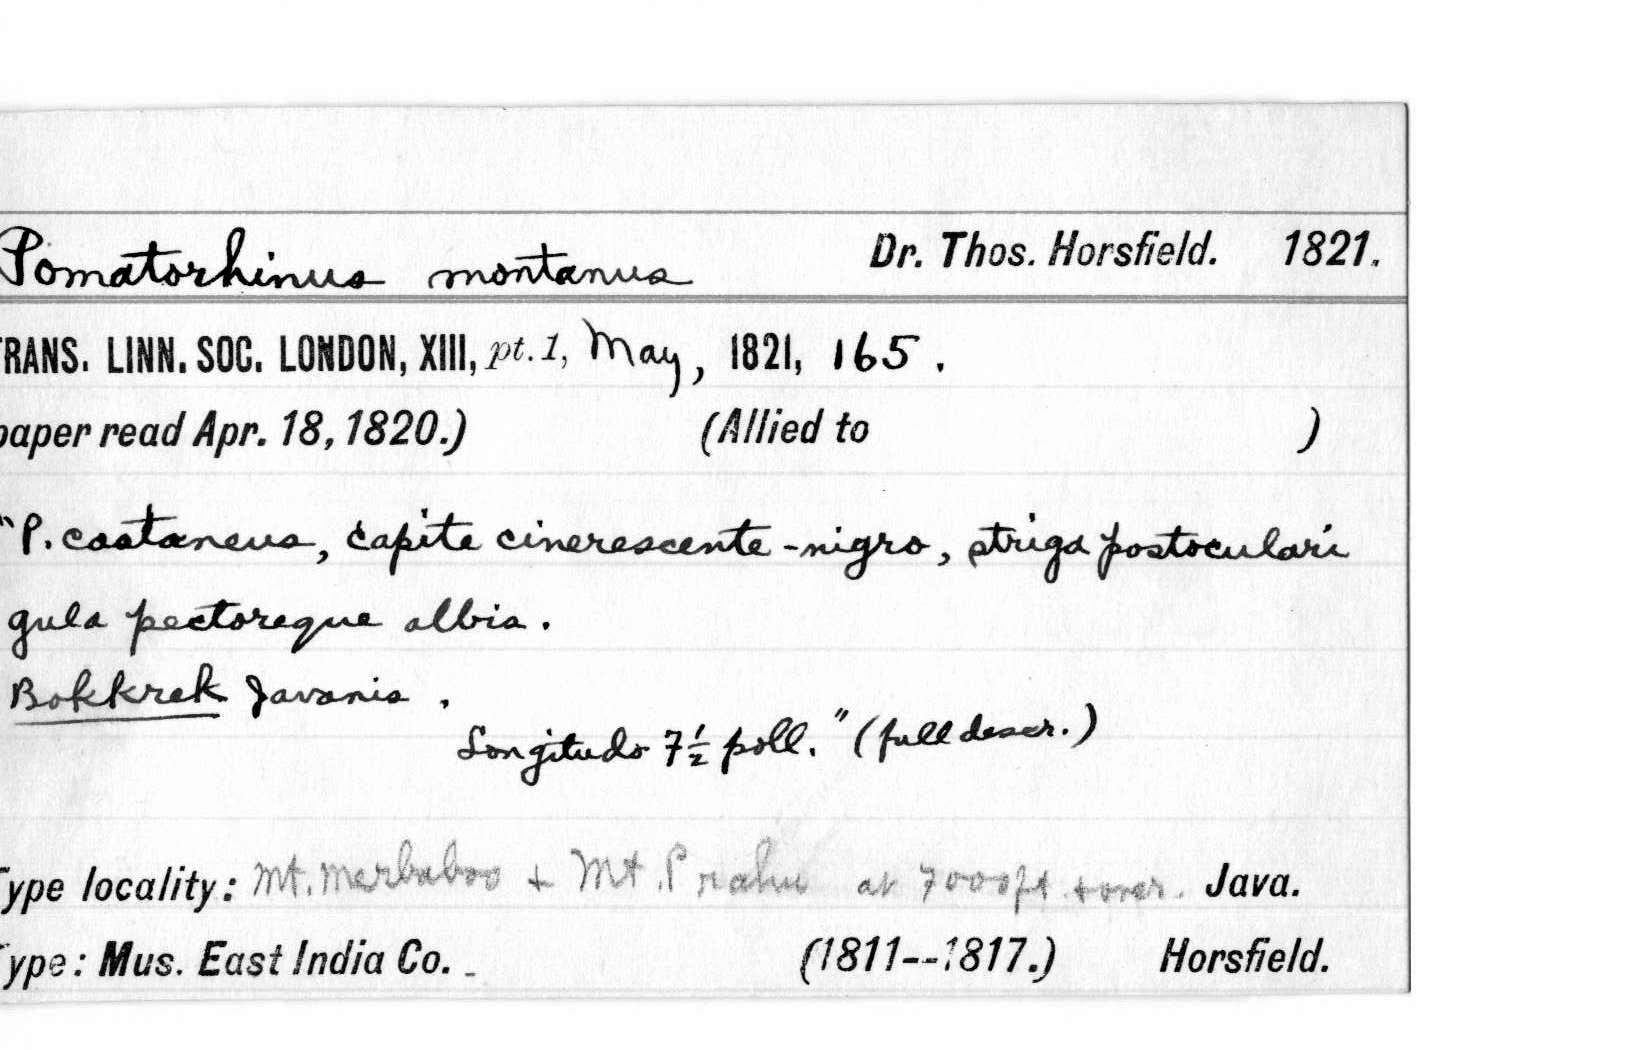 Pomatorhinus montanus Dr. Thos. Horsfield. 1821.
TRANS. LINN. SOC. LONDON, XIII, pt. 1, May, 1821, 165.
paper read Apr. 18, 1820.) (Allied to )
"P. castaneus, capite cinerescente-nigro, striga postoculari
gula pectoreque albis.
Bokkrek Javanis.
Longitudo 7½ poll." (full descr.)
Type locality: Mt. Merbaboo + Mt. Prahu at 7000 ft. + over. Java.
Type: Mus. East India Co. (1811--1817.) Horsfield.